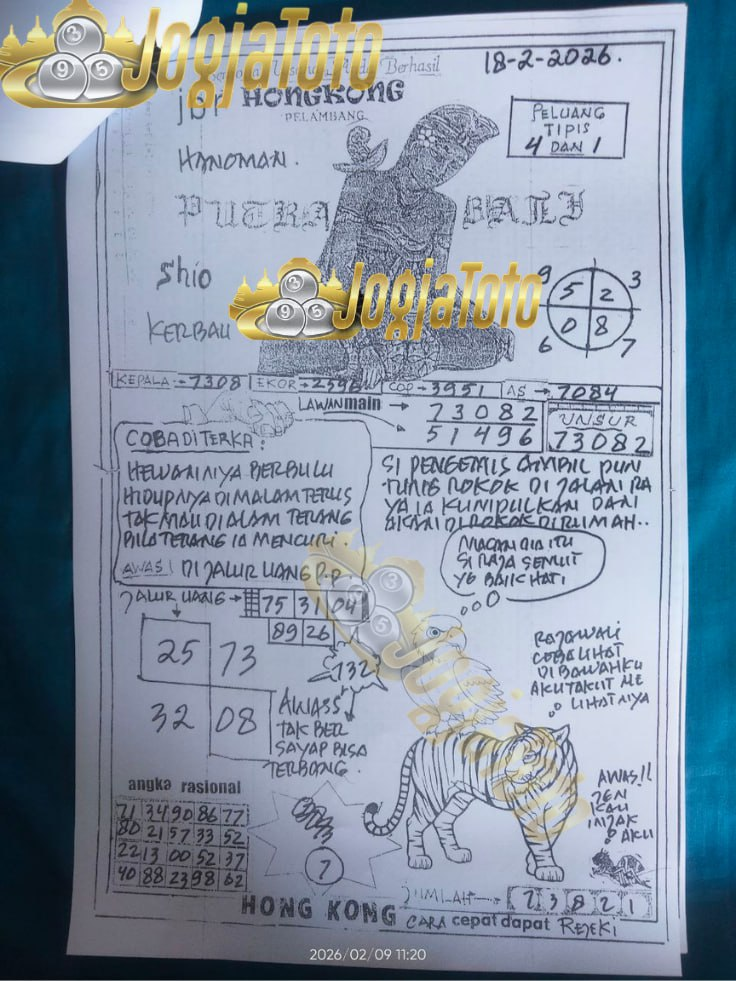 JogjaToto
18-2-2026.
Berhasil
HONGKONG
PELAMBANG
PELUANG
TIPIS
4 DAN 1
HANOMAN.
PUTRA BALI
Shio
KERBAU
JogjaToto
9 3
5 2
0 8
6 7
KEPALA → 7308 EKOR → 2596 COP → 3951 AS → 7084
LAWAN main → 73082
51496
UNSUR
73082
COBA DITERKA:
HEWANNYA BERBULU
HIDUPNYA DI MALAM TERUS
TAK MAU DI ALAM TERANG
BILA TERANG IA MENCURI.
AWAS! DI JALUR UANG P.P
SI PENGEMIS AMBIL PUN
TUNG ROKOK DI JALAN RA
YA IA KUMPULKAN DAN
AKAN DI ROKOK DIRUMAH..
MACAN DIA ITU
SI RAJA SEMUT
YG BAIK HATI
JALUR UANG → 75 31 04
89 26
25 73
32 08
732
AWASS
TAK BER
SAYAP BISA
TERBANG.
RAJAWALI
COBA LIHAT
DI BAWAHKU
AKU TAKUT ME
LIHATNYA
AWAS!!
JEN
KAU
INJAK
AKU
angka rasional
71 34 90 86 77
80 21 57 33 52
22 13 00 52 37
40 88 23 98 62
7
JUMLAH → 7 3 8 2 1
HONG KONG CARA cepat dapat REJEKI
2026/02/09 11:20